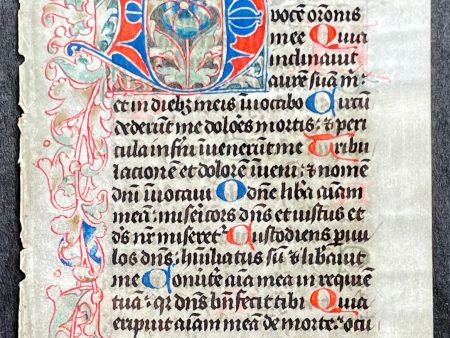 vocē orōnis
mee Quia
inclinavit
aurē suā m̄:
et in diebȝ meis īvocibo Circū
dederūt me doloēs mortis: ⁊ peri
cula īfrni īvenerūt me Tribu
lationē et dolorē īveni: ⁊ nomē
dnī īvocavi O dn̄e liba aīam
meā: misēicors dn̄s et iustus et
ds̄ nr̄ miseret᷑ Custodiens p̄vu
los dn̄s: hūiliatus sū ⁊ libavit
me Conv̄te aīa mea in requiē
tuā: qr dn̄s bn̄fecit tibi Quia
eripuit aīam meā de morte: ocu